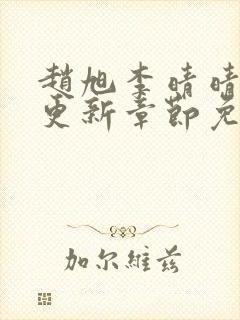 趙旭李晴晴
更新章節免
加尔維茲